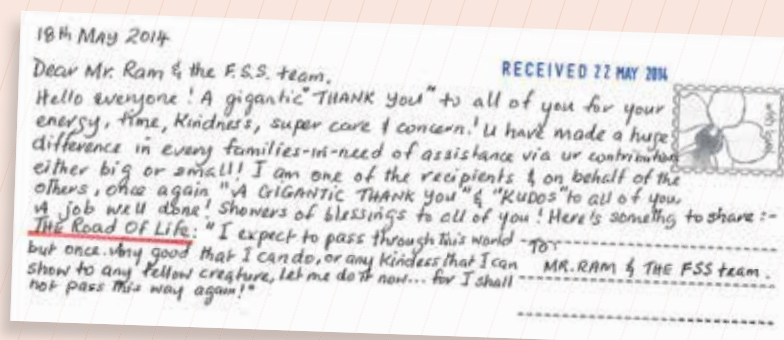 18th MAY 2014
RECEIVED 22 MAY 2014
Dear Mr. Ram & the F.S.S. team.
Hello everyone! A gigantic "THANK YOU" to all of you for your
energy, time, kindness, super care & concern! U have made a huge
difference in every families-in-need of assistance via ur contribution
either big or small! I am one of the recipients & on behalf of the
others, once again "A GIGANTIC THANK YOU" & "KUDOS" to all of you.
A job well done! Showers of blessings to all of you! Here's somethg to share:-
THE Road OF Life: "I expect to pass through this world
but once. Any good that I can do, or any kindess that I can
show to any fellow creature, let me do it now... for I shall
not pass this way again!"
To:
MR. RAM & THE FSS team.